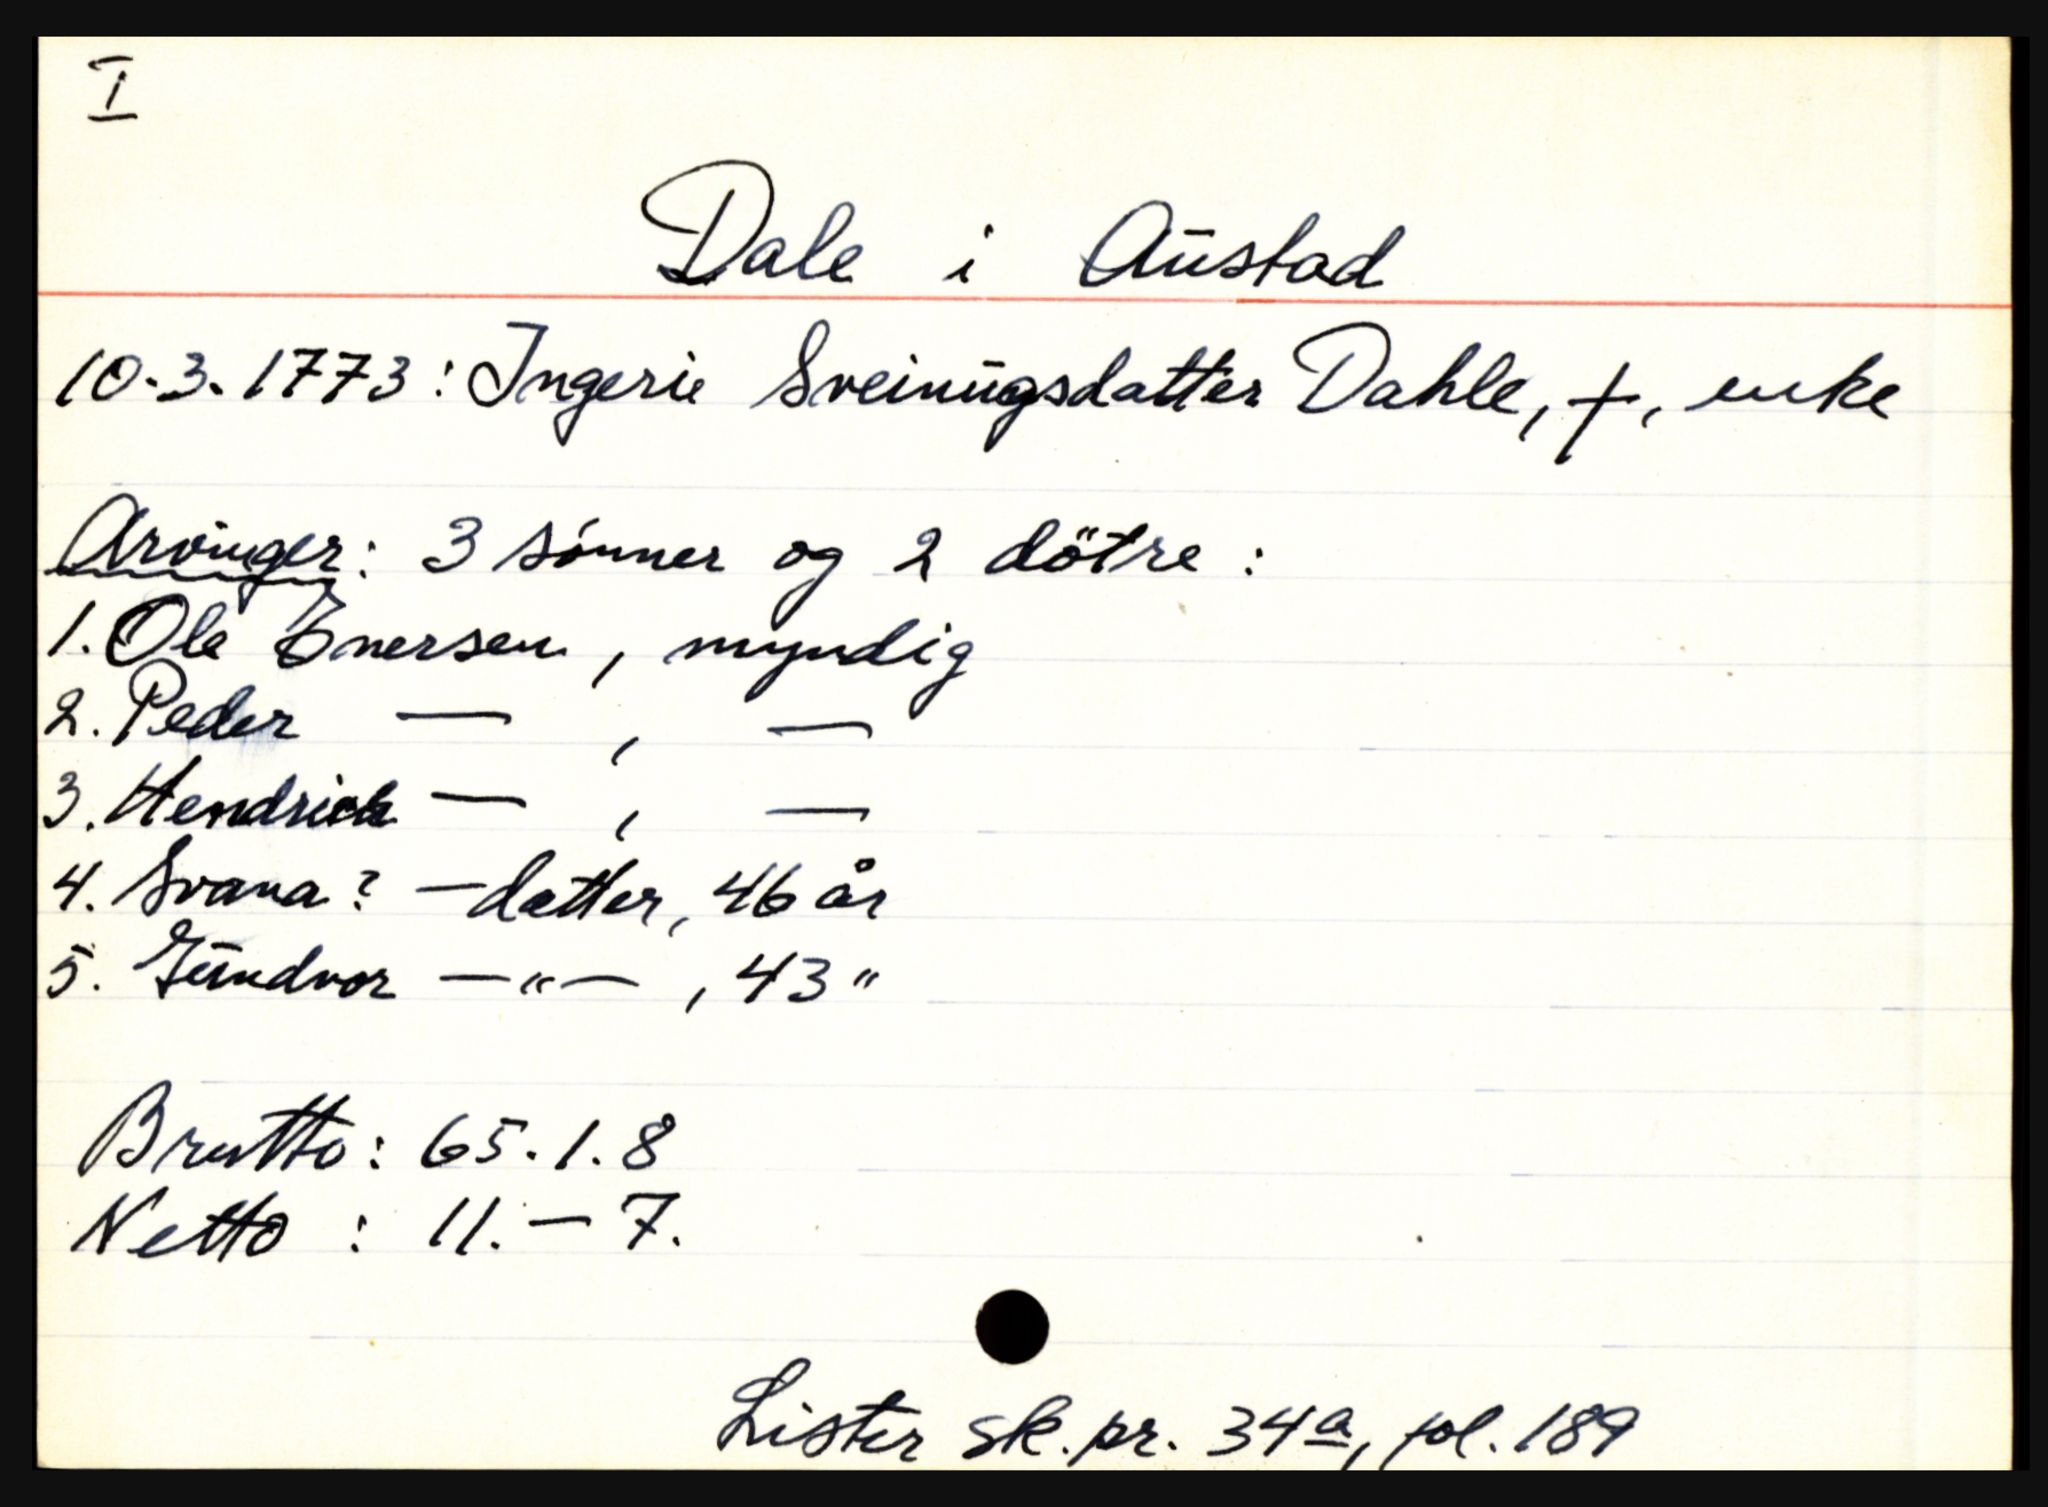 I
Dale i Austad
10.3.1773: Ingerie Sveinugsdatter Dahle, †, enke
Arvinger: 3 sönner og 2 dötre:
1. Ola Enersen, myndig
2. Peder — , —
3. Hendrich — , —
4. Svana? — datter, 46 år
5. Gundvor —"— , 43 "
Brutto: 65.1.8
Netto : 11. — 7.
Lister sk.pr. 34a, fol. 189